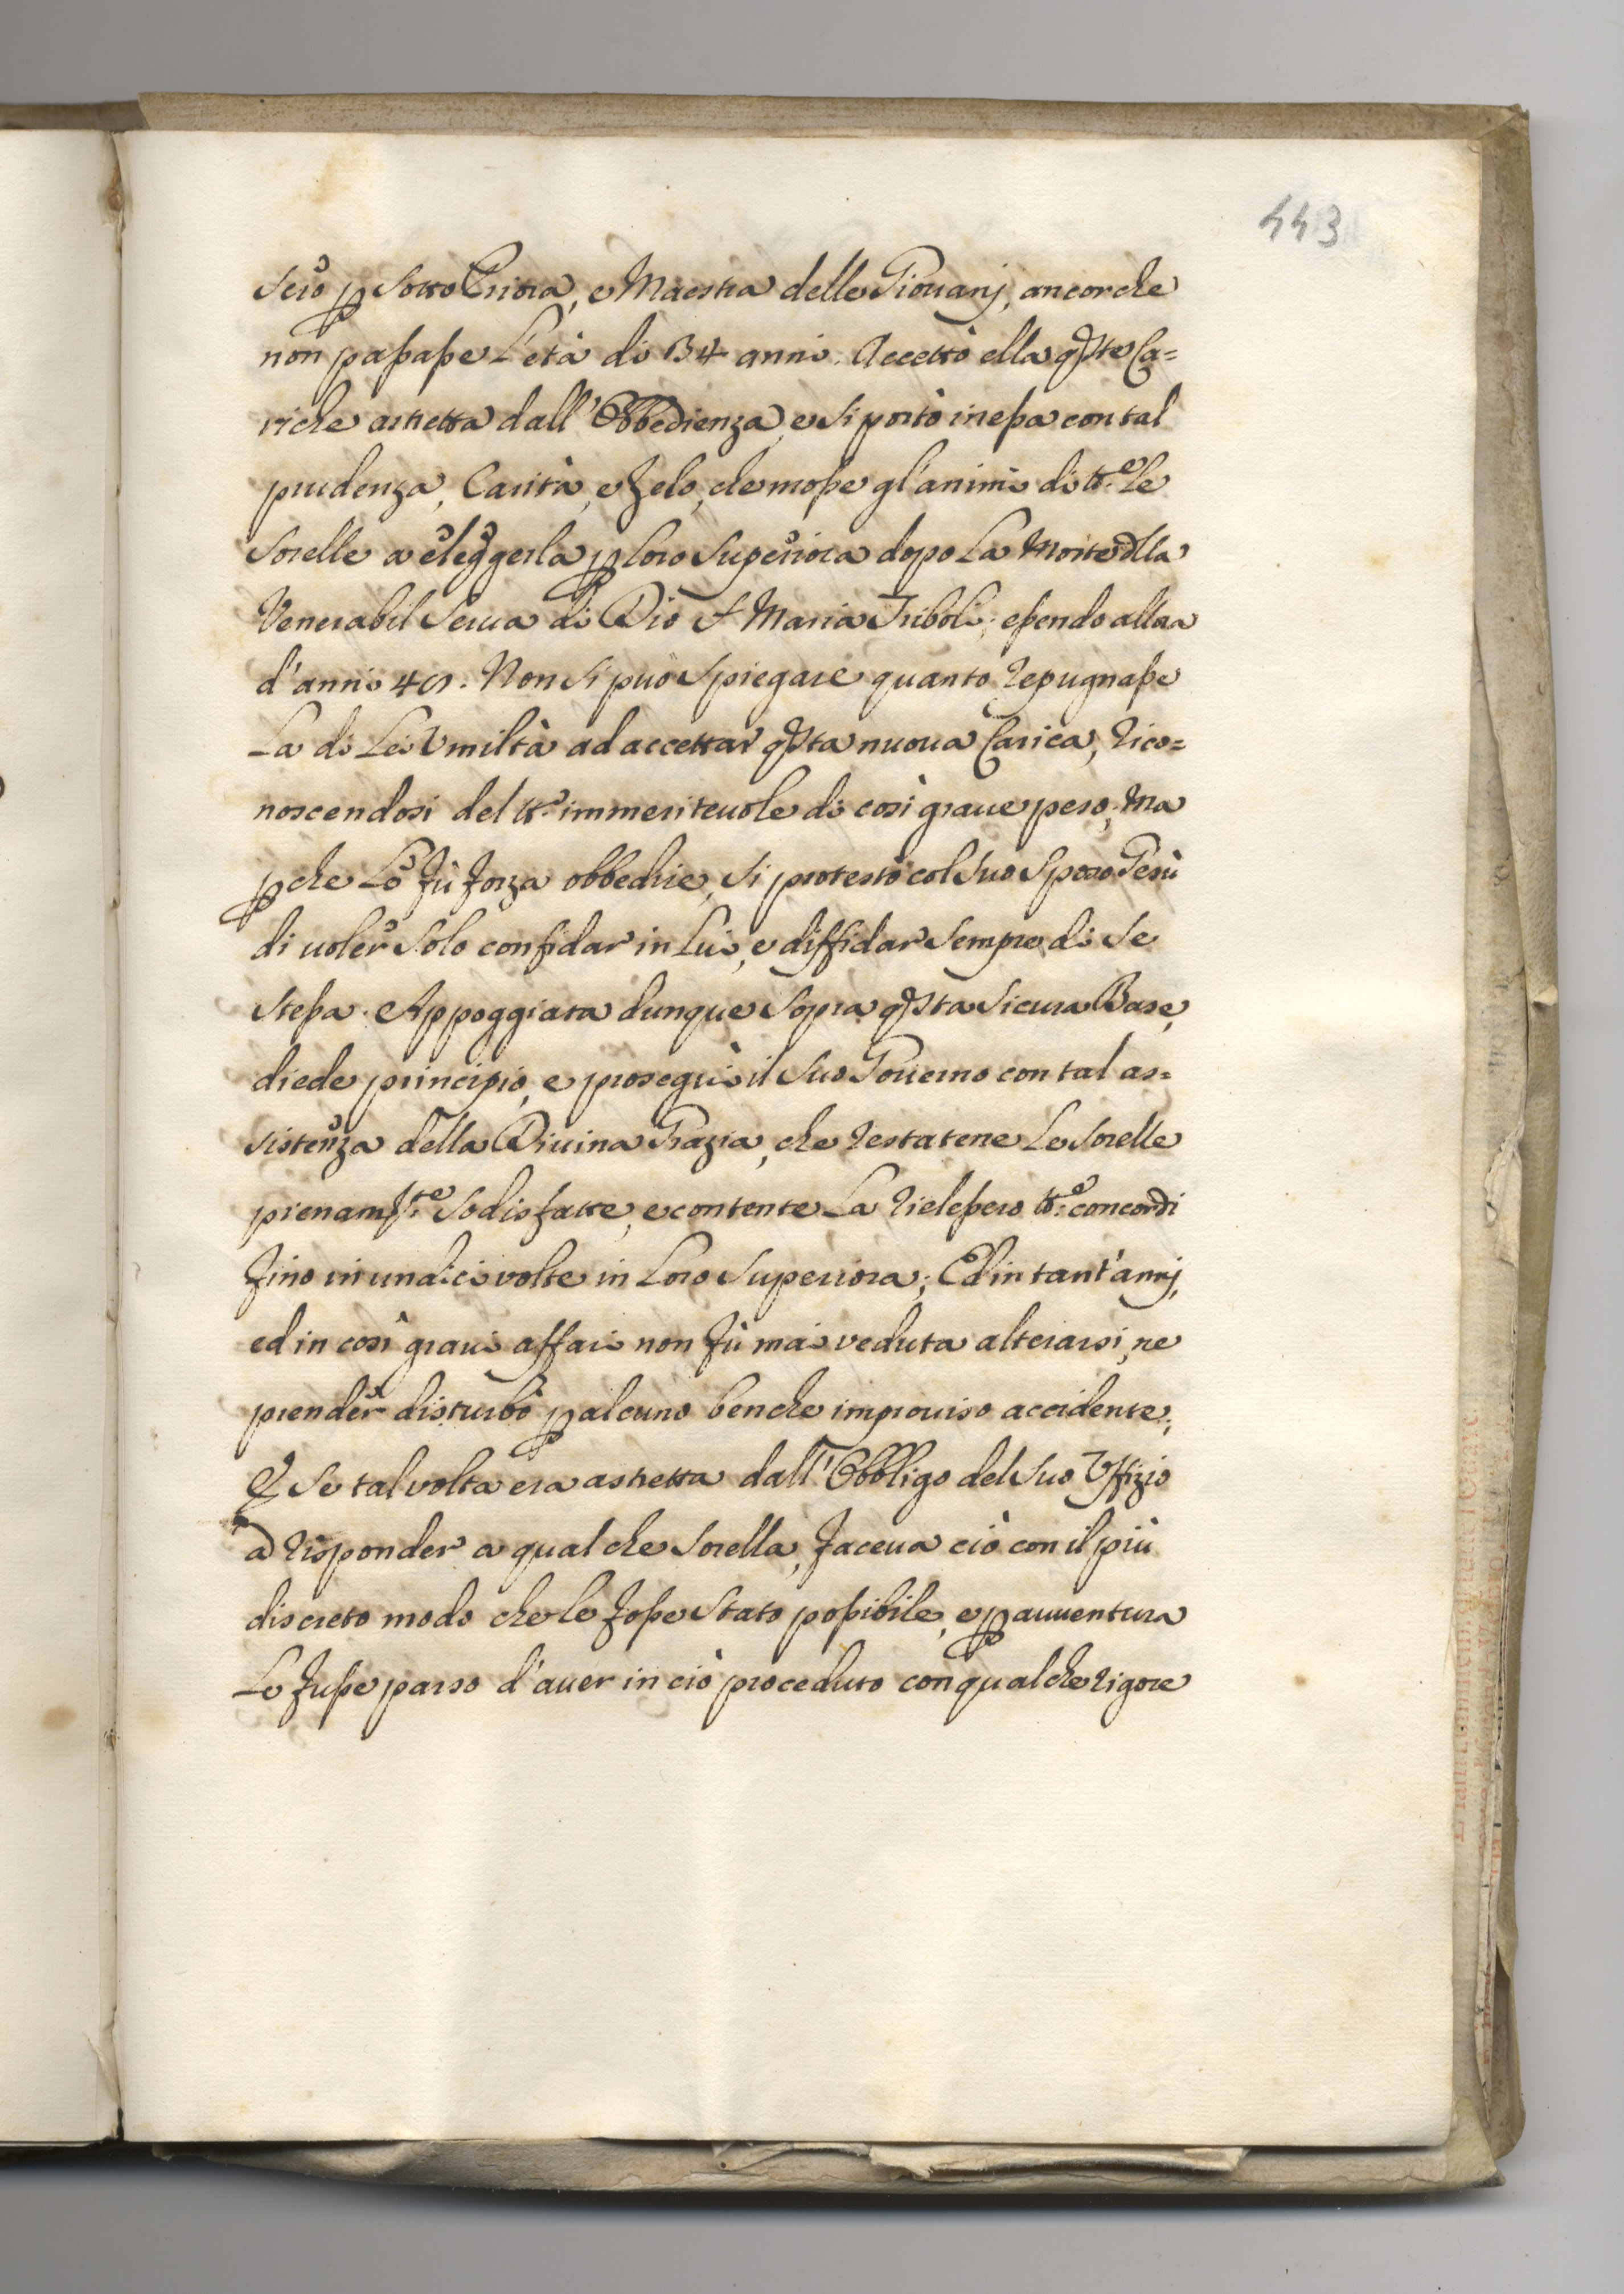 443
sero p Sotto Priora, e Maestra delle Giouanj, ancorche
non passasse L'età di 34 anni. Accettò ella qste Ca=
riche astretta dall'Obbedienza, e si portò in essa con tal
prudenza, Carità, e Zelo, che mosse gl'animi di tt.e le
Sorelle a eleggerla p loro Superiora dopo La Morte dlla
Venerabil Serua di Dio S Maria Triboli; essendo allora
d'anni 40. Non si può Spiegare quanto repugnasse
La di Lei Vmiltà ad accettar qsta nuoua Carica, rico=
noscendosi del tt.o immeriteuole di così graue peso; Ma
pche Le fù forza obbedire, si protestò col Suo Sposo Gesù
di uoler Solo confidar in Lui, e diffidar Sempre di Se
Stessa. Appoggiata dunque Sopra qsta Sicura Base,
diede principio, e proseguì il Suo Gouerno con tal as=
sistenza della Diuina Grazia, che restatene Le Sorelle
pienam.te Sodisfatte, e contente La rielessero tt.e concordi
fino in undici volte in Loro Superiora; Ed in tant'annj,
ed in così graui affari non fù mai veduta alterarsi, ne
prender disturbo p alcuno benche improuiso accidente;
E Se tal volta era astretta dall'Obbligo del Suo Vffizio
a risponder a qualche Sorella, faceua ciò con il più
discreto modo che le fosse Stato possibile, e p auuentura
Le fusse parso d'auer in ciò proceduto con qualche rigore